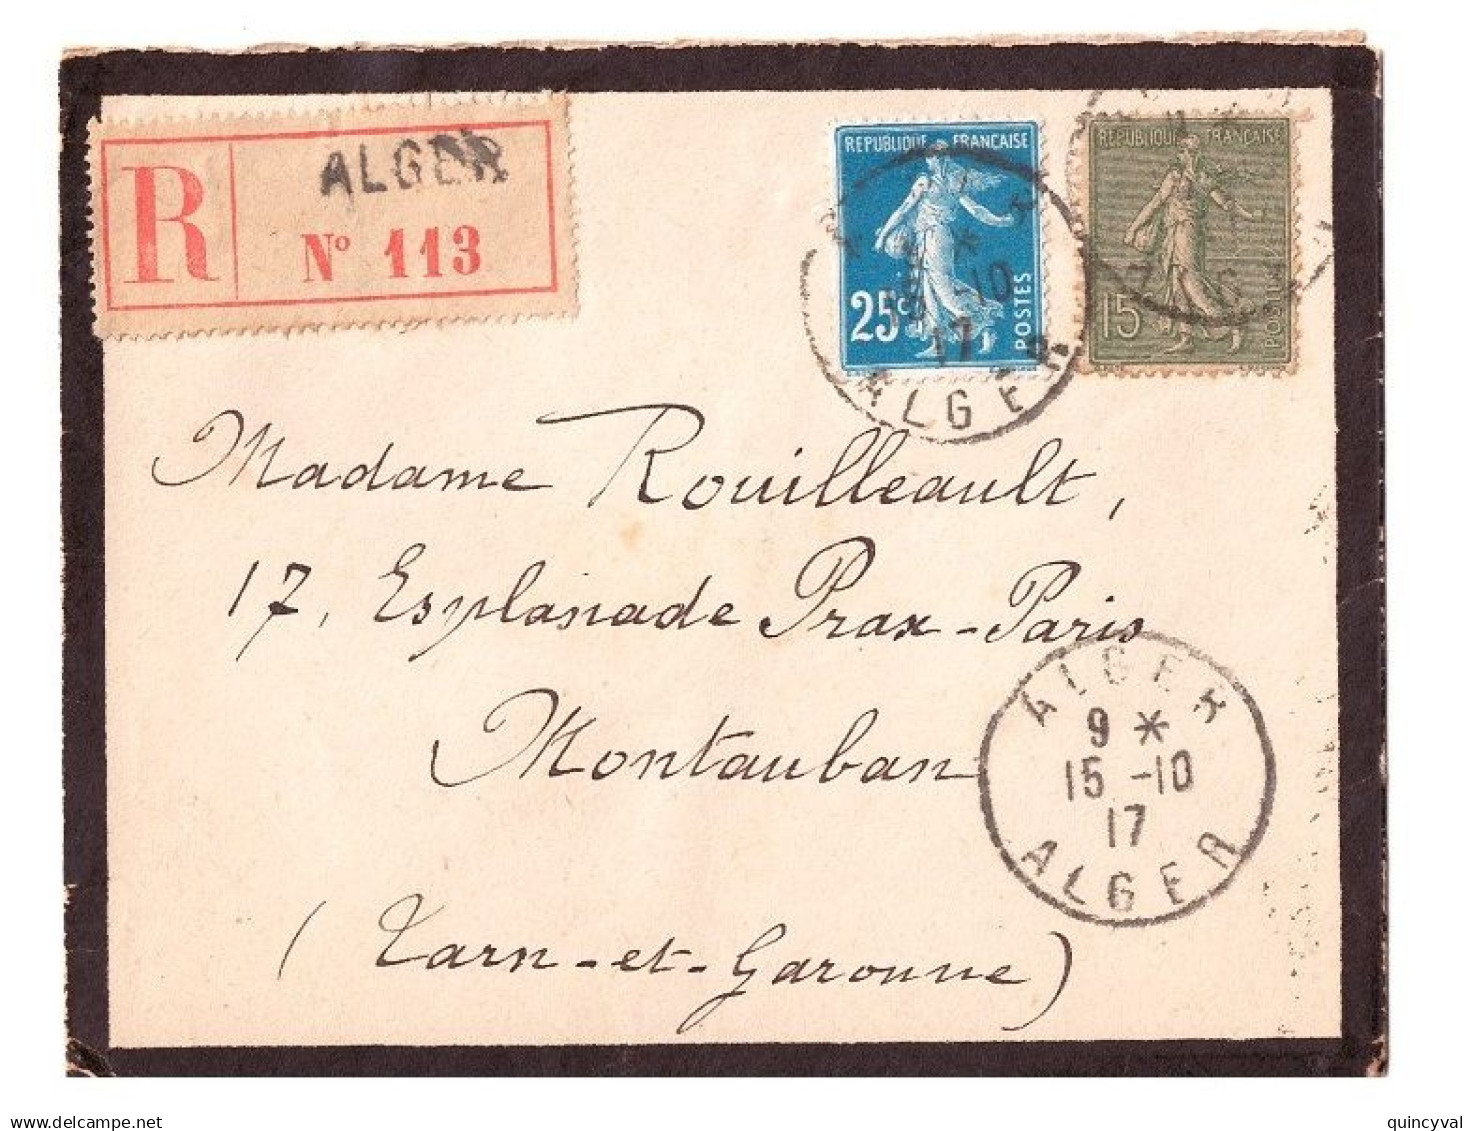 R
ALGER
N° 113
REPUBLIQUE FRANÇAISE
25c
POSTES
REPUBLIQUE FRANÇAISE
15
POSTES
* 
15 -10
17
ALGER
Madame Rouilleault,
17, Esplanade Prax-Paris
Montauban
(Tarn-et-Garonne)
ALGER
9 *
15 -10
17
ALGER
delcampe.net
quincyval